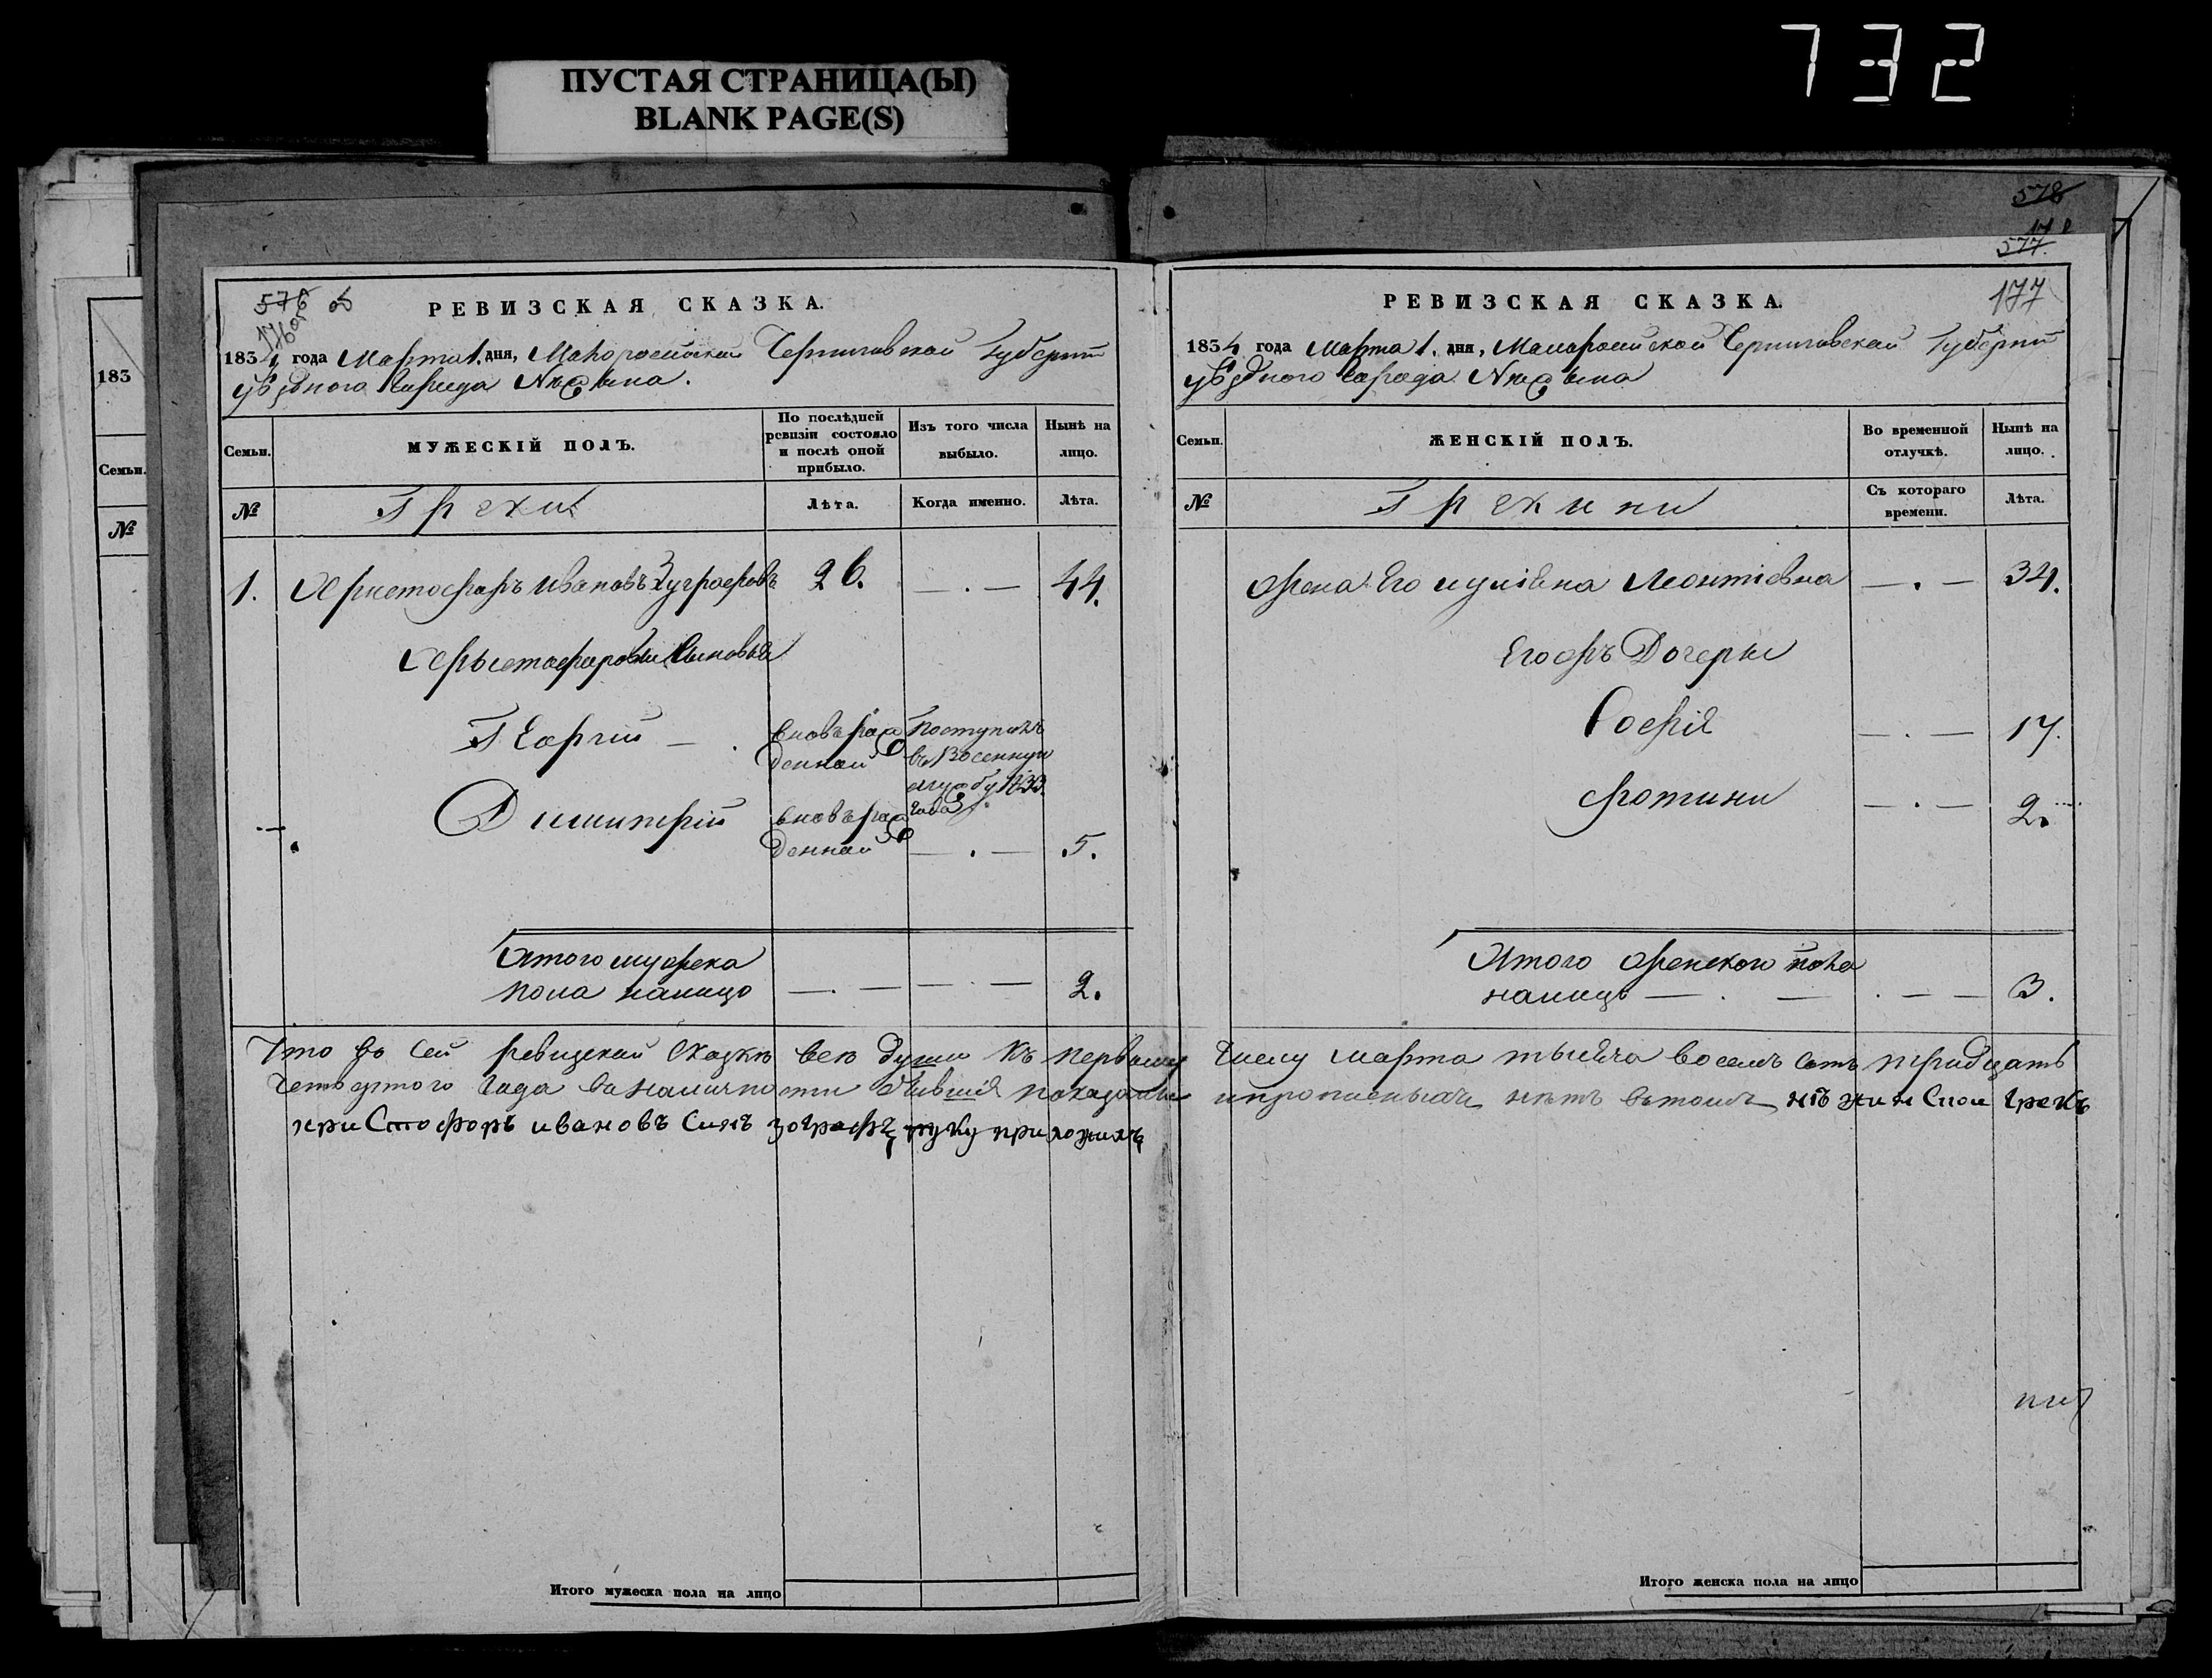 ПУСТАЯ СТРАНИЦА(Ы)
BLANK PAGE(S)
732
183
Семьи.
№
576
176 об
РЕВИЗСКАЯ СКАЗКА.
1834 года Марта 1. дня, Малоросійской Черниговской Губерніи
уѣзднаго города Нѣжина.
Семьи.
МУЖЕСКІЙ ПОЛЪ.
По послѣдней ревизіи состояло и послѣ оной прибыло.
Изъ того числа выбыло.
Нынѣ на лицо.
№
Греки
Лѣта.
Когда именно.
Лѣта.
1. Христофоръ Ивановъ 26. — . — 44.
Христофоровы Сыновья
Георгій — . вновь рож
денной
Поступилъ
въ Военную
службу 1833
года
Димитрій вновь рож
денной — . — 5.
Итого мужска
пола налицо — . — — . — 2.
Что въ сей ревизской сказкѣ всѣ души къ первому
четвертого года въ наличности бывшія показаны
христофоръ ивановъ синъ зографъ руку приложилъ
Итого мужеска пола на лицо
578
577
177
РЕВИЗСКАЯ СКАЗКА.
1834 года Марта 1. дня, Малоросийской Черниговской Губерніи
уѣзднаго города Нѣжина
Семьи.
ЖЕНСКІЙ ПОЛЪ.
Во временной отлучкѣ.
Нынѣ на лицо.
№
Гречики
Съ котораго времени.
Лѣта.
жена Его Леонтіевна — . — 34.
Ихъ Дочери
Софія — . — 17.
Фотини — . — 2.
Итого женского пола
налицо — . — . — — 3.
числу марта тысяча восемь сотъ тридцать
и прописныхъ нѣтъ въ томъ нѣжинской грекъ
Итого женска пола на лицо